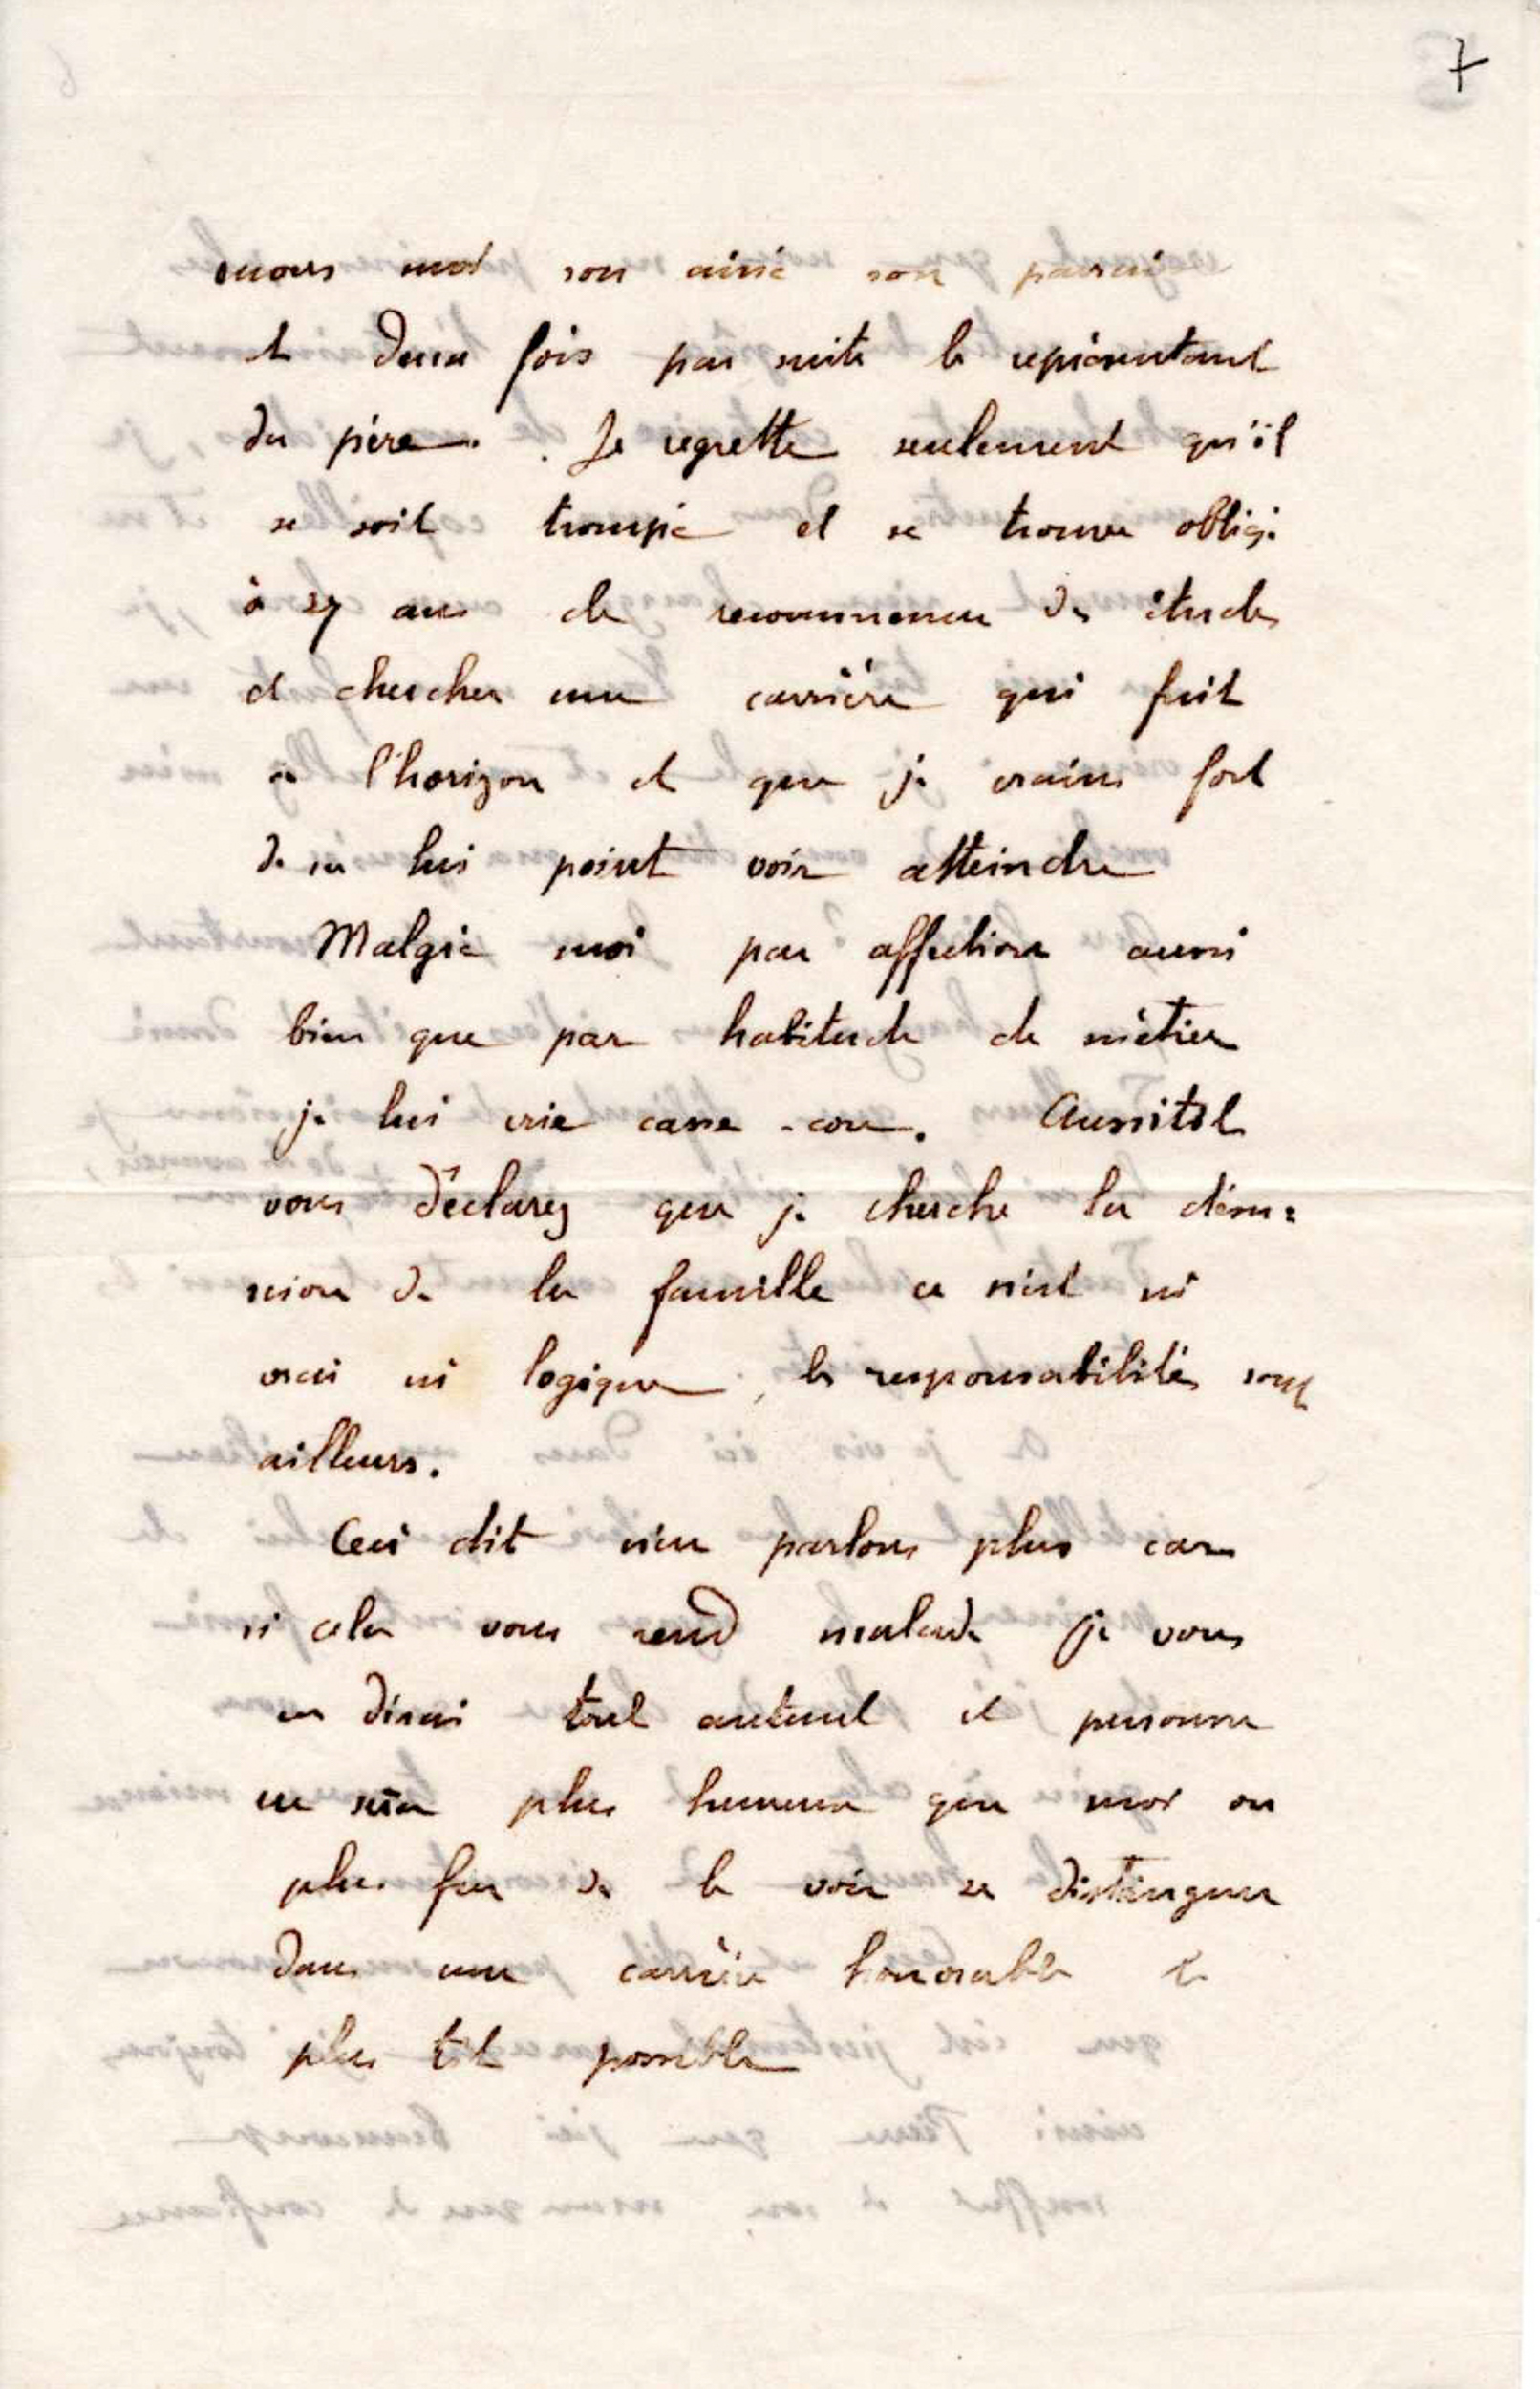 7
envers moi son ainé son parrain
et deux fois par suite le représentant
du père. Je regrette seulement qu'il
se soit trompé et se trouve obligé
à 27 ans de recommencer des études
et chercher une carrière qui fuit
à l'horizon et que je crains fort
de ne lui point voir atteindre
Malgré moi par affection aussi
bien que par habitude de métier
je lui crie casse-cou. Aussitôt
vous déclarez que je cherche la désu=
nion de la famille ce n'est ni
vrai ni logique, les responsabilités sont
ailleurs.
Ceci dit n'en parlons plus car
si cela vous rend malade je vous
en dirai tout autant et personne
ne sera plus heureux que moi ou
plus fier de le voir se distinguer
dans une carrière honorable le
plus tôt possible